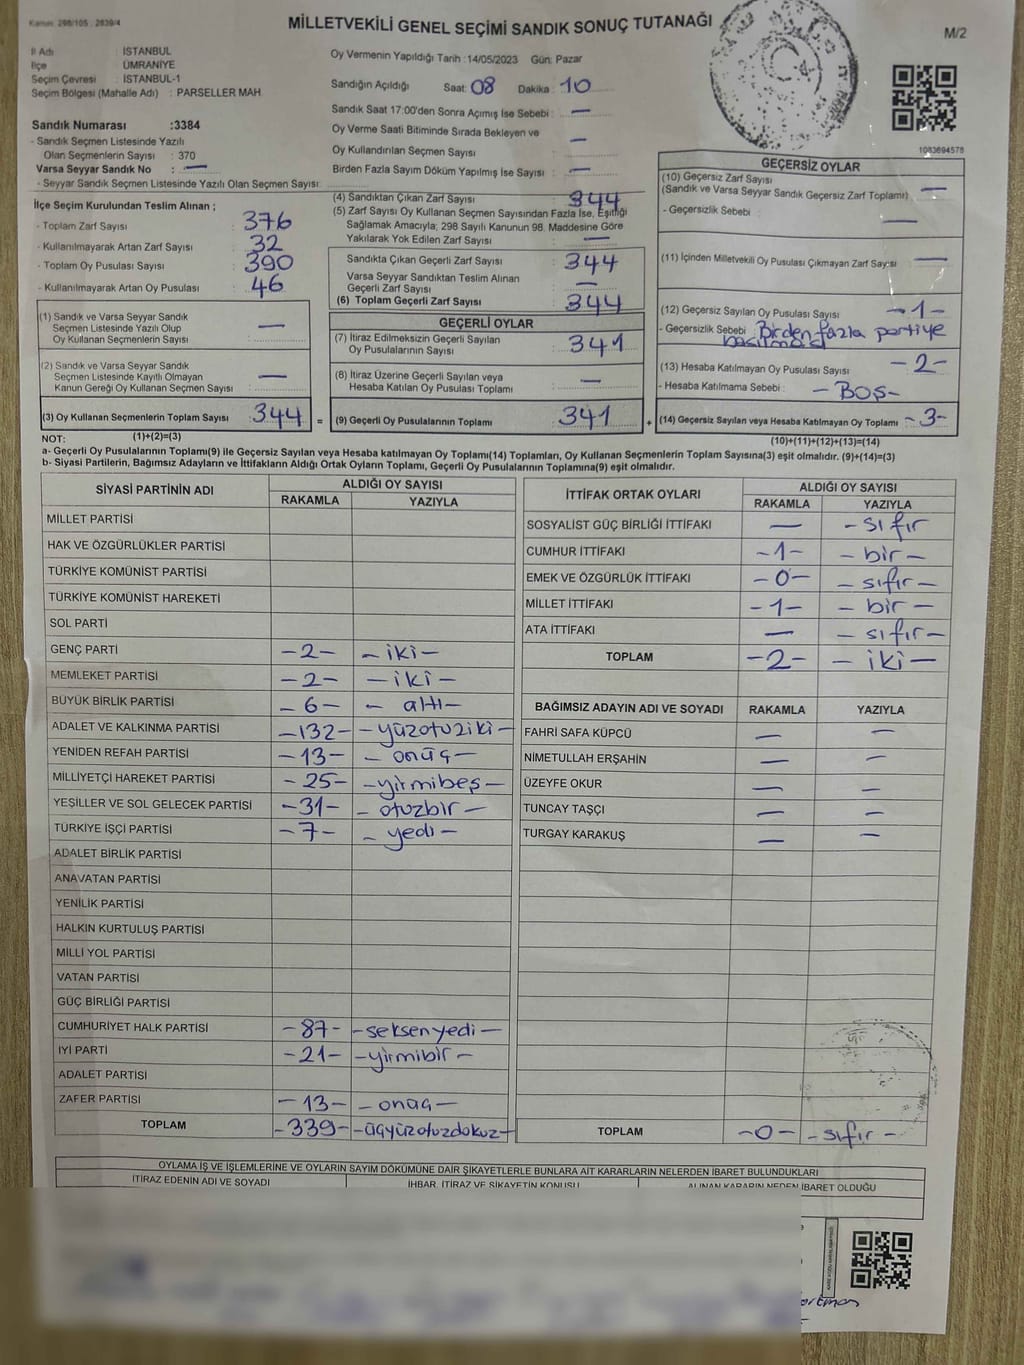 Kanun: 298/105 . 2839/4
MİLLETVEKİLİ GENEL SEÇİMİ SANDIK SONUÇ TUTANAĞI
M/2
İl Adı : İSTANBUL
İlçe : ÜMRANİYE
Seçim Çevresi : İSTANBUL-1
Seçim Bölgesi (Mahalle Adı) : PARSELLER MAH
Sandık Numarası :3384
- Sandık Seçmen Listesinde Yazılı
Olan Seçmenlerin Sayısı : 370
Varsa Seyyar Sandık No : —
- Seyyar Sandık Seçmen Listesinde Yazılı Olan Seçmen Sayısı:
İlçe Seçim Kurulundan Teslim Alınan ;
- Toplam Zarf Sayısı : 376
- Kullanılmayarak Artan Zarf Sayısı : 32
- Toplam Oy Pusulası Sayısı : 390
- Kullanılmayarak Artan Oy Pusulası : 46
(1) Sandık ve Varsa Seyyar Sandık
Seçmen Listesinde Yazılı Olup
Oy Kullanan Seçmenlerin Sayısı : —
(2) Sandık ve Varsa Seyyar Sandık
Seçmen Listesinde Kayıtlı Olmayan
Kanun Gereği Oy Kullanan Seçmen Sayısı : —
(3) Oy Kullanan Seçmenlerin Toplam Sayısı : 344 =
Oy Vermenin Yapıldığı Tarih :14/05/2023 Gün: Pazar
Sandığın Açıldığı Saat: 08 Dakika : 10
Sandık Saat 17:00'den Sonra Açımış İse Sebebi : —
Oy Verme Saati Bitiminde Sırada Bekleyen ve
Oy Kullandırılan Seçmen Sayısı : —
Birden Fazla Sayım Döküm Yapılmış İse Sayısı : —
(4) Sandıktan Çıkan Zarf Sayısı : 344
(5) Zarf Sayısı Oy Kullanan Seçmen Sayısından Fazla İse, Eşitliği
Sağlamak Amacıyla; 298 Sayılı Kanunun 98. Maddesine Göre
Yakılarak Yok Edilen Zarf Sayısı : —
Sandıkta Çıkan Geçerli Zarf Sayısı : 344
Varsa Seyyar Sandıktan Teslim Alınan
Geçerli Zarf Sayısı : —
(6) Toplam Geçerli Zarf Sayısı : 344
GEÇERLİ OYLAR
(7) İtiraz Edilmeksizin Geçerli Sayılan
Oy Pusulalarının Sayısı : 341
(8) İtiraz Üzerine Geçerli Sayılan veya
Hesaba Katılan Oy Pusulası Toplamı : —
(9) Geçerli Oy Pusulalarının Toplamı : 341 +
1083694578
GEÇERSİZ OYLAR
(10) Geçersiz Zarf Sayısı
(Sandık ve Varsa Seyyar Sandık Geçersiz Zarf Toplamı) : —
- Geçersizlik Sebebi : —
(11) İçinden Milletvekili Oy Pusulası Çıkmayan Zarf Sayısı : —
(12) Geçersiz Sayılan Oy Pusulası Sayısı : -1-
- Geçersizlik Sebebi : Birden fazla partiye
basılması
(13) Hesaba Katılmayan Oy Pusulası Sayısı : -2-
- Hesaba Katılmama Sebebi : - BOŞ-
(14) Geçersiz Sayılan veya Hesaba Katılmayan Oy Toplamı : -3-
NOT: (1)+(2)=(3) (10)+(11)+(12)+(13)=(14)
a- Geçerli Oy Pusulalarının Toplamı(9) ile Geçersiz Sayılan veya Hesaba katılmayan Oy Toplamı(14) Toplamları, Oy Kullanan Seçmenlerin Toplam Sayısına(3) eşit olmalıdır. (9)+(14)=(3)
b- Siyasi Partilerin, Bağımsız Adayların ve İttifakların Aldığı Ortak Oyların Toplamı, Geçerli Oy Pusulalarının Toplamına(9) eşit olmalıdır.
SİYASİ PARTİNİN ADI ALDIĞI OY SAYISI
RAKAMLA YAZIYLA
MİLLET PARTİSİ
HAK VE ÖZGÜRLÜKLER PARTİSİ
TÜRKİYE KOMÜNİST PARTİSİ
TÜRKİYE KOMÜNİST HAREKETİ
SOL PARTİ
GENÇ PARTİ -2- - iki-
MEMLEKET PARTİSİ -2- -iki-
BÜYÜK BİRLİK PARTİSİ - 6- - altı-
ADALET VE KALKINMA PARTİSİ -132- -yüzotuziki-
YENİDEN REFAH PARTİSİ -13- - onüç-
MİLLİYETÇİ HAREKET PARTİSİ -25- -yirmibeş-
YEŞİLLER VE SOL GELECEK PARTİSİ -31- - otuzbir-
TÜRKİYE İŞÇİ PARTİSİ -7- - yedi-
ADALET BİRLİK PARTİSİ
ANAVATAN PARTİSİ
YENİLİK PARTİSİ
HALKIN KURTULUŞ PARTİSİ
MİLLİ YOL PARTİSİ
VATAN PARTİSİ
GÜÇ BİRLİĞİ PARTİSİ
CUMHURİYET HALK PARTİSİ -87- -seksenyedi-
İYİ PARTİ -21- -yirmibir-
ADALET PARTİSİ
ZAFER PARTİSİ -13- -onüç-
TOPLAM -339- -üçyüzotuzdokuz-
İTTİFAK ORTAK OYLARI ALDIĞI OY SAYISI
RAKAMLA YAZIYLA
SOSYALİST GÜÇ BİRLİĞİ İTTİFAKI — -sıfır
CUMHUR İTTİFAKI -1- - bir -
EMEK VE ÖZGÜRLÜK İTTİFAKI -0- - sıfır-
MİLLET İTTİFAKI -1- - bir -
ATA İTTİFAKI — - sıfır-
TOPLAM -2- - iki-
BAĞIMSIZ ADAYIN ADI VE SOYADI RAKAMLA YAZIYLA
FAHRİ SAFA KÜPCÜ — —
NİMETULLAH ERŞAHİN — —
ÜZEYFE OKUR — —
TUNCAY TAŞÇI — —
TURGAY KARAKUŞ — —
TOPLAM -0- -sıfır -
OYLAMA İŞ VE İŞLEMLERİNE VE OYLARIN SAYIM DÖKÜMÜNE DAİR ŞİKAYETLERLE BUNLARA AİT KARARLARIN NELERDEN İBARET BULUNDUKLARI
İTİRAZ EDENİN ADI VE SOYADI İHBAR, İTİRAZ VE ŞİKAYETİN KONUSU ALINAN KARARIN NEDEN İBARET OLDUĞU